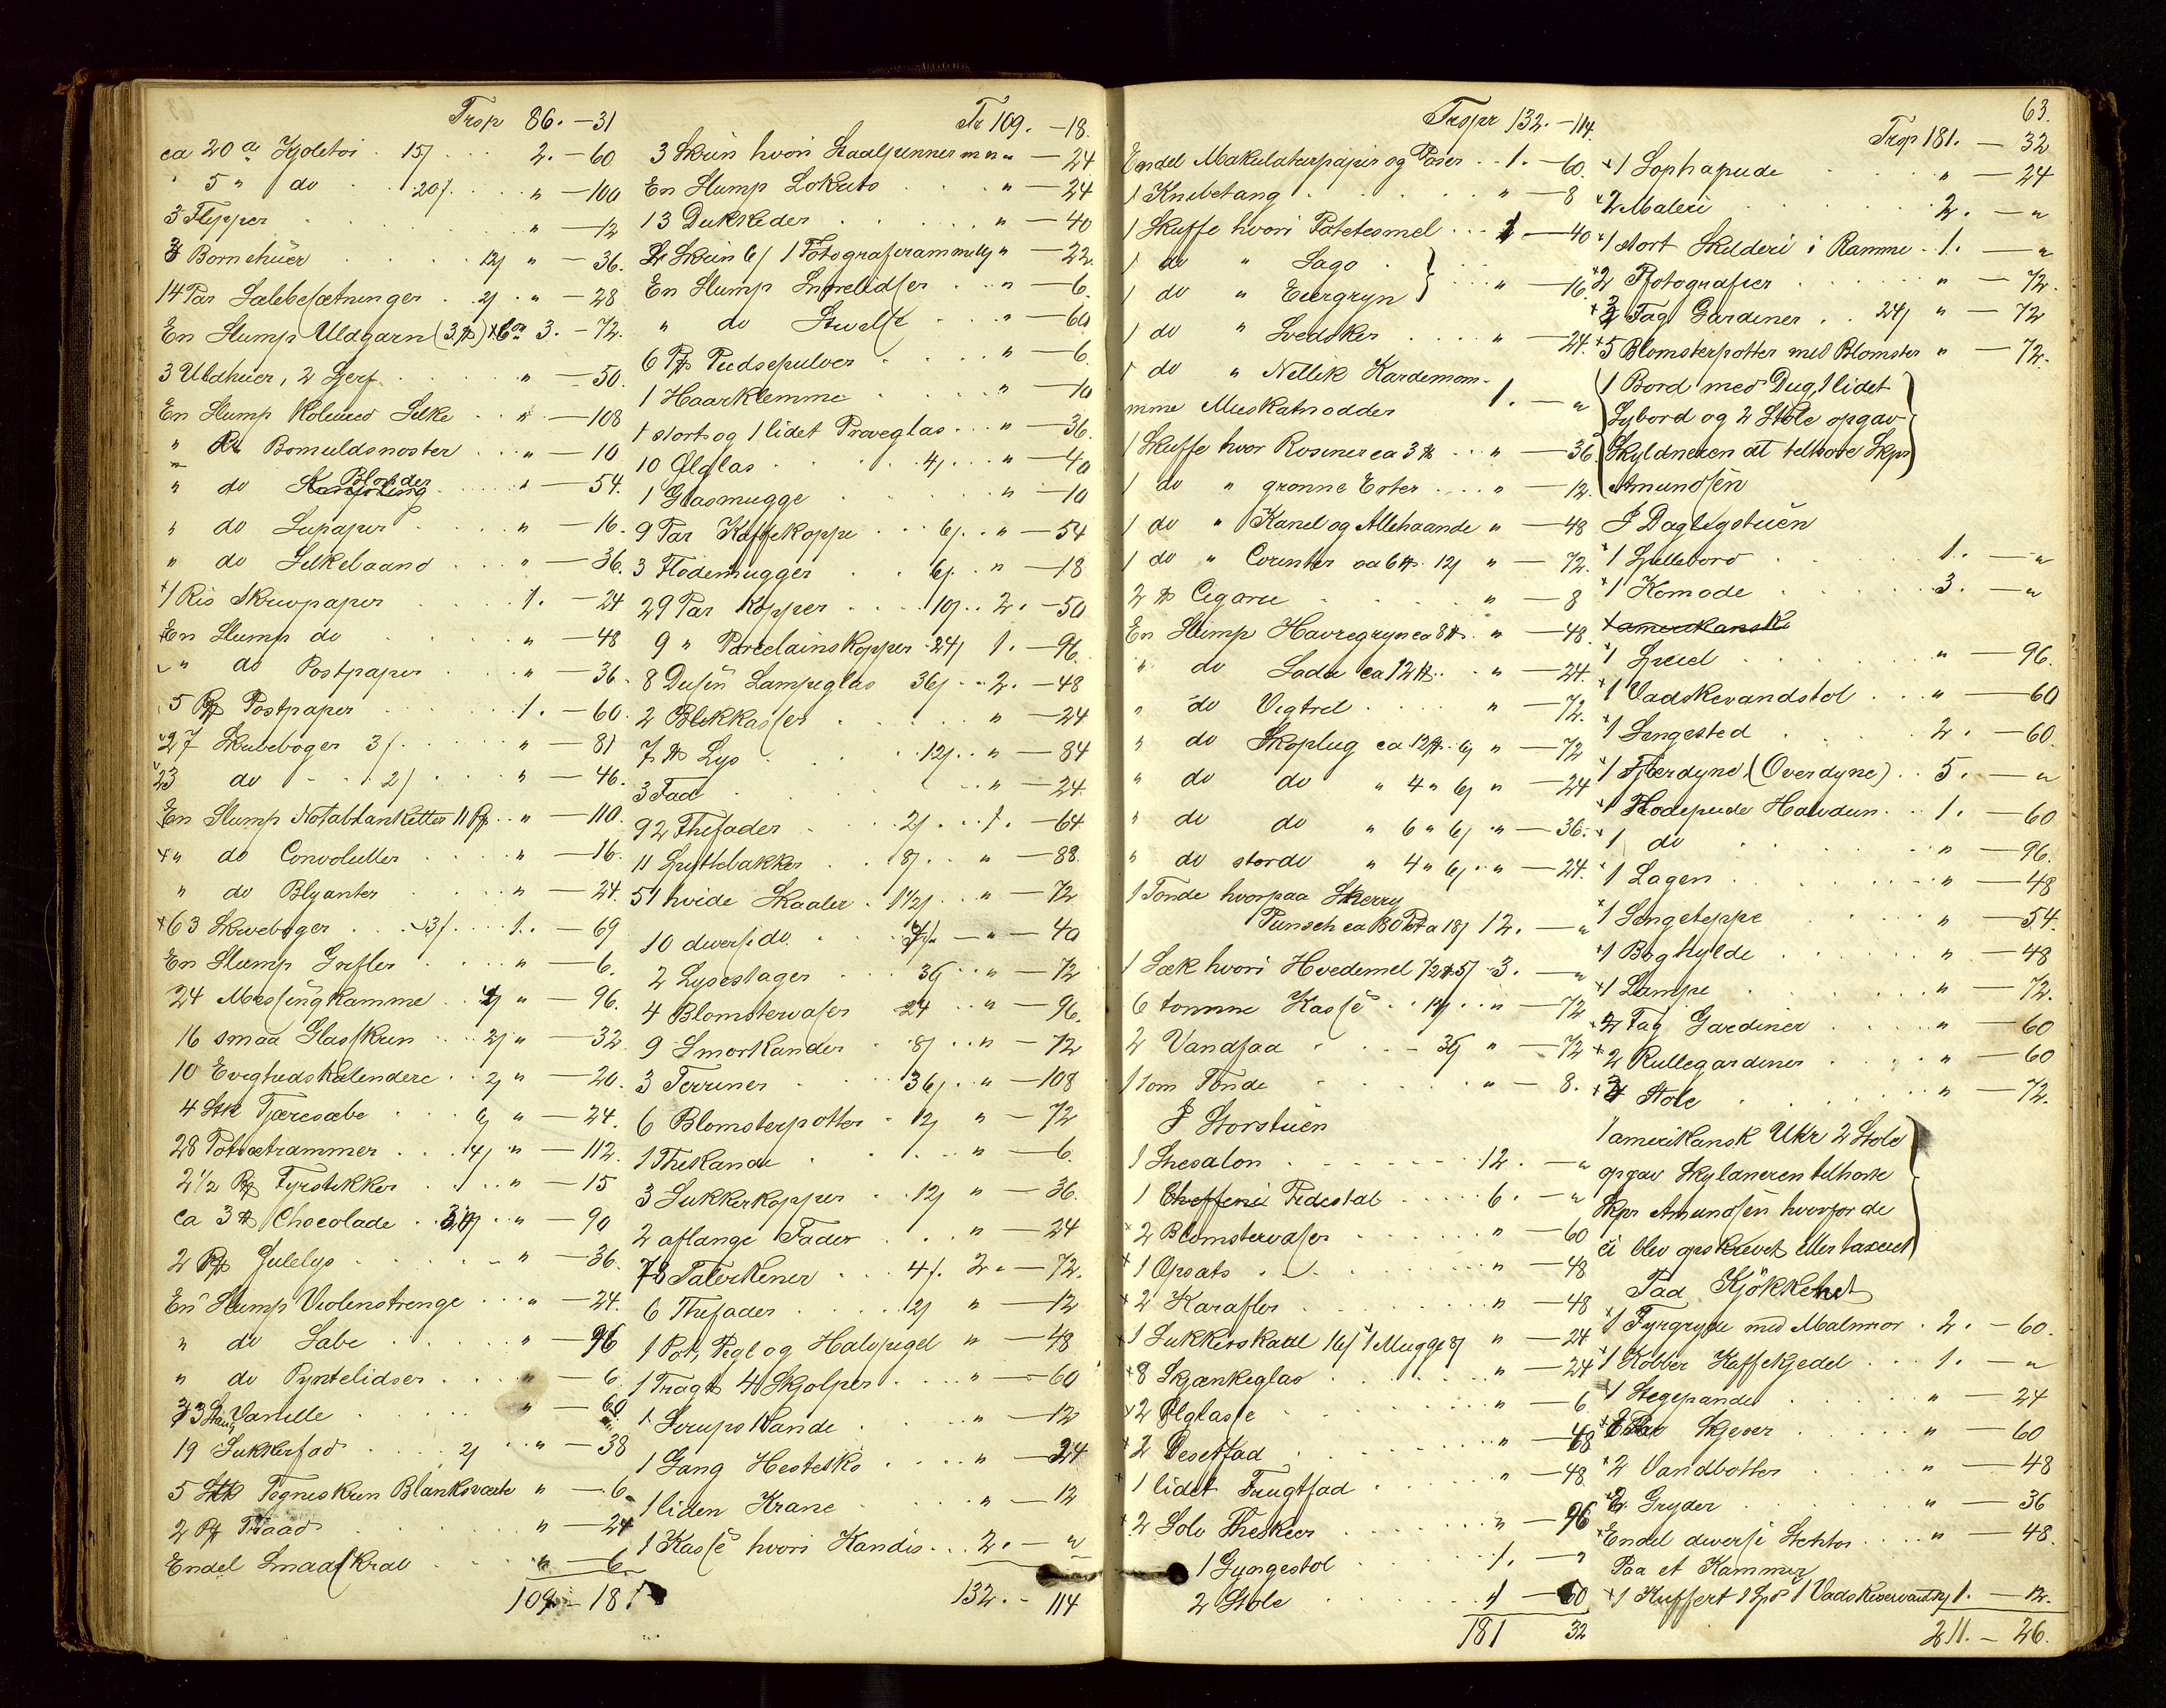 Trsp 86. – 31
ca 20 al Kjoletøi . 15/ . . . 2. – 60
" 5 " do . . 20/. . . " – 100
3 Flipper . . . . " – 12
3 Bornehuer . . . . 12/ " – 36.
14 Par Sælebesætninger . 2/ . " – 28
En Slump Uldgarn (3 ℔) 3. – 72.
3 Uldhuer, 2 Sjerf . . . " – 50.
En Slump Kolleured Silke . . " – 108
" Do Bomuldsnoster . . . " – 10
" do Blonder . . . " – 54.
" do Supapir . . . " – 16.
" do Silkebaand . . . " – 36.
+1 Ris Skrivpapir . . . 1. – 24
+En Slump do . . . " – 48
" do Postpapir . . . " – 36.
5 Bg Postpapir . . . 1. – 60.
27 Skrivebøger 3/. . . . " – 81
23 do - . . 2/ . . . " – 46.
En Slump Notablanketter 11 Bg . . " – 110.
+ " do Convolutter . . . " – 16.
" do Blyanter . . . " – 24.
+63 Skrivebøger . . . 3/. . . 1. – 69
En Slump Grifler . . . " – 6.
24 Messingkamme . . 4/ " – 96.
16 smaa Glasskrin . . . 2/ " – 32.
10 Evighedskalendere . . 2/ " – 20.
4 Stk Tjæresæbe . . . 6/ " – 24.
28 Potrætrammer . . . 4/ " – 112.
2 1/2 Bg Fyrstikker . . . " – 15
ca 3 ℔ Chocolade . . " – 90
2 Pk Julelys . . . " – 36.
En Slump Violinstrenge . . . " – 24.
" do Sæbe . . . " – 96
" do Pyntelidser . . . " – 6.
3 Stang Vanille . . . " – 60
19 Sukkerfad . . . 2/ . . " – 38
5 Stk Tegneskrin Blanksværte " – 6.
2 Pk Traad . . . " – 24
Endel Smaaskrab . . . " – 6.
109 – 181
Tr 109. – 18.
3 Skrin hvori Staalpenner m m " – 24
En Slump Lokuts . . . " – 24
13 Dukkeder . . . " – 40
2 Skrin 6/ 1 Fotograferamme 10/ " – 22.
En Slump Snorelidser . . . " – 6.
" do Stivelse . . . " – 60
6 Pk Pudsepulver . . . " – 6
1 Haarklemme . . . " – 10
1 stort og 1 lidet Prøveglas . . . " – 36.
10 Ølglas . . . 4/ . . . " – 40
1 Glasmugge . . . " – 10
9 Par Kaffekoppe . . . 6/. . . " – 54
3 Flødemugger . . . 6/ . . " – 18
29 Par Kopper . . . 10/ . . 2. – 50
9 " Porcelainskopper . 24/ 1. – 96.
8 Dusin Lampeglas 36/ . . . 2. – 48
2 Blikkasser . . . " – 24
7 ℔ Lys . . . 12/. . " – 84
3 Fad . . . " – 24.
92 Thefader . . . 2/ . . . 1. – 64.
11 Spyttebakker . . . 8/. . . " – 88.
51 hvide Skaaler . 1 1/2/ . . " – 72
10 diverse do . . . 4/. – " – 40
2 Lysestager . . . 36/ . . " – 72
4 Blomstervaser . 24 . . " – 96.
9 Smørkander . . 8/ . . " – 72
3 Terriner . . . 36/. . . " – 108
6 Blomsterpotter . 12/ " – 72
1 Thekande . . . " – 6.
3 Sukkerkopper . . . 12/ " – 36.
2 aflange Fader . . . " – 24
78 Talerkener . . . 4/. 2. – 72.
6 Thefader . . . 2/ " – 12
1 Pot, Pegl og Halvpegel " – 48
1 Tragt 4 Skjolper . . . " – 60
1 Sirups Kande . . . " – 12
1 Gang Hestesko . . . " – 24
1 liden Krane . . . " – 12
1 Kasse hvori Kandis . . . 2. – "
132. – 114
Trspr 132. – 114.
Endel Makulaturpapir og Poser . . 1. – 60.
1 Knibetang . . . " – 8
1 Skuffe hvori Potetesmel . . . – 40
1 do " Sago . }
1 do " Euergryn } . . " – 16.
1 do " Svedsker . . . " – 24.
1 do " Nellik Kardemom-
mme Muskatnødder 1. – "
1 Skuffe hvor Rosiner ca 3 ℔ . . . " – 36.
1 do " grønne Erter . . . " – 12.
1 do " Kanel og Allehaande " – 48
1 do " Corinter ca 6 ℔. 12/ " – 72.
2 ℔ Cigorie . . . " – 8
En Slump Havregryn ca 8 ℔. " – 48.
" do Soda ca 12 ℔. . " – 24.
" do Vigtrel . . . " – 72.
" do Skoplug ca 12 ℔. 6/ " – 72
" do do " 4 " 6/ " – 24
" do do " 6 " 6/ " – 36.
" do stor do " 4 " 6/ . " – 24.
1 Tønde hvorpaa Sherry
Punsch ca 80 Pot a 18/ 12. – "
1 Sæk hvori Hvedemel 72 ℔. 5/ . 3. – "
6 tomme Kasse . . 12/ . . " – 72
2 Vandfad . . . 36/ " – 72
1 tom Tønde . . . " – 8.
I Storstuen
1 Shesalon . . . 12. – "
1 Pidestal . . . 6. – "
+2 Blomstervaser . . . " – 60
+1 Opsats . . . " – 48
+2 Karafler . . . " – 48
+1 Sukkerskaal 16/ +1 Mugge 8/ " – 24
+8 Skjænkeglas . . . " – 24
2 Ølglasse . . . " – 6.
+2 Desetfad . . . " – 48
1 lidet Frugtfad . . . " – 48.
+2 Solv Theskeer . . . " – 96
1 Gyngestol . . . 1. – "
2 Stole . . . – 60
181 32
63.
Trsp 181. – 32
+1 Sophapude . . . " – 24
+2 Maleri . . . 2. – "
+1 stort Skilderi i Ramme . 1. – "
+2 Fotografier . . . " – 72.
+3 Fag Gardiner . . 24/ " – 72
+5 Blomsterpotter med Blomster " – 72.
1 Bord med Dug, 1 lidet
Sybord og 2 Stole opgav
Skyldneren at tilhøre Skpr
Amundsen
I Dagligstuen
+1 Spillebord . . . 1. – "
+1 Komode . . . 3. – "
1 amerikansk
+1 Speil . . . " – 96.
+1 Vadskevandstol . . . " – 60
+1 Sengested . . . 2. – 60.
+1 Fjærdyne (Overdyne) . . 5. – "
+1 Hodepude Halvdun . . 1. – 60
+1 do . . . " – 96.
+1 Lagen . . . " – 48
+1 Sengeteppe . . . " – 54.
+1 Boghylde . . . " – 48
+1 Lampe . . . " – 72.
+2 Fag Gardiner . . . " – 60
+2 Rullegardiner . . . " – 60
+3 Stole . . . " – 72.
1 amerikansk Ukr 2 Stole
opgav Skylaneren tilhøre
Skpr Amundsen hvorfor de
ei blev opskrevet eller taxeret
Paa Kjökkenet
+1 Fyrgryde med Malmror . 2. – 60.
+1 Kobber Kaffekjedel . . . 1. – "
+1 Stegepande . . . " – 24
Skjeer . . . " – 60
+2 Vandbøtter . . . " – 48
Gryder . . . " – 36
+Endel diverse . . . " – 48.
Paa et Kammer
+1 Kuffert 1 Vadskeservantty 1. – 12.
211. – 26.